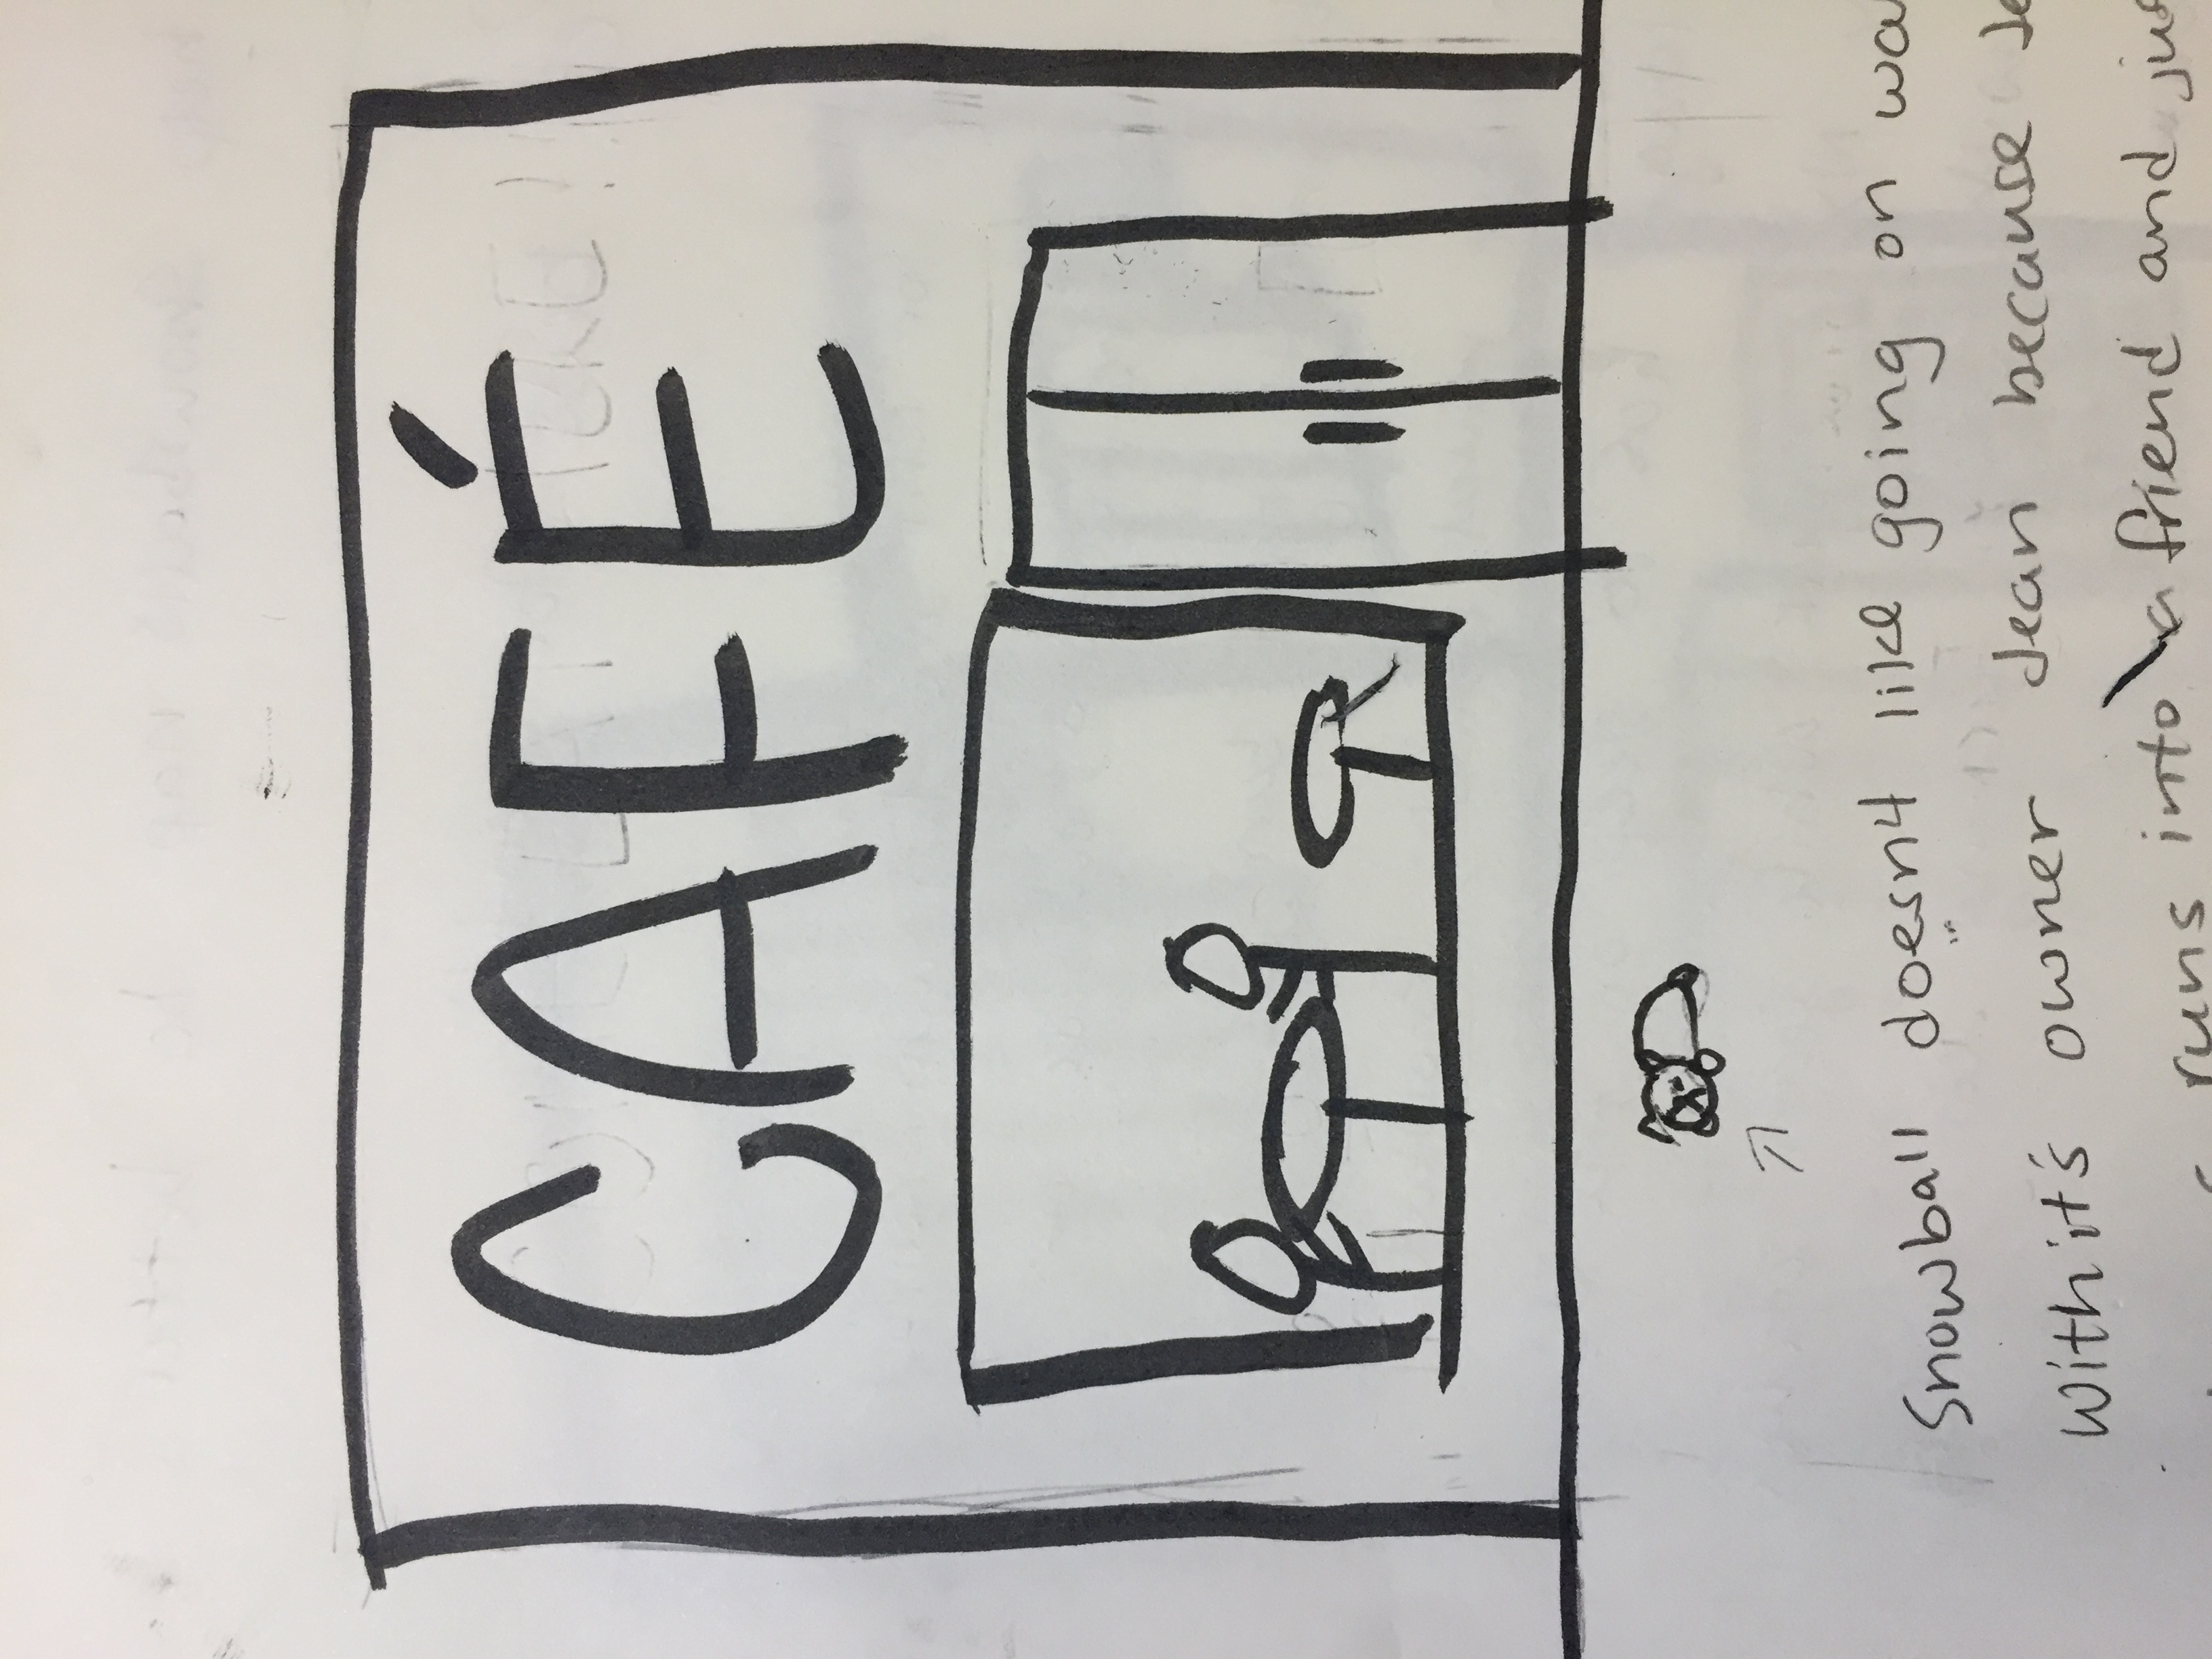 CAFÉ
Snowball doesn't like going on wa
with it's owner Jean because Je
runs into a friend and jus